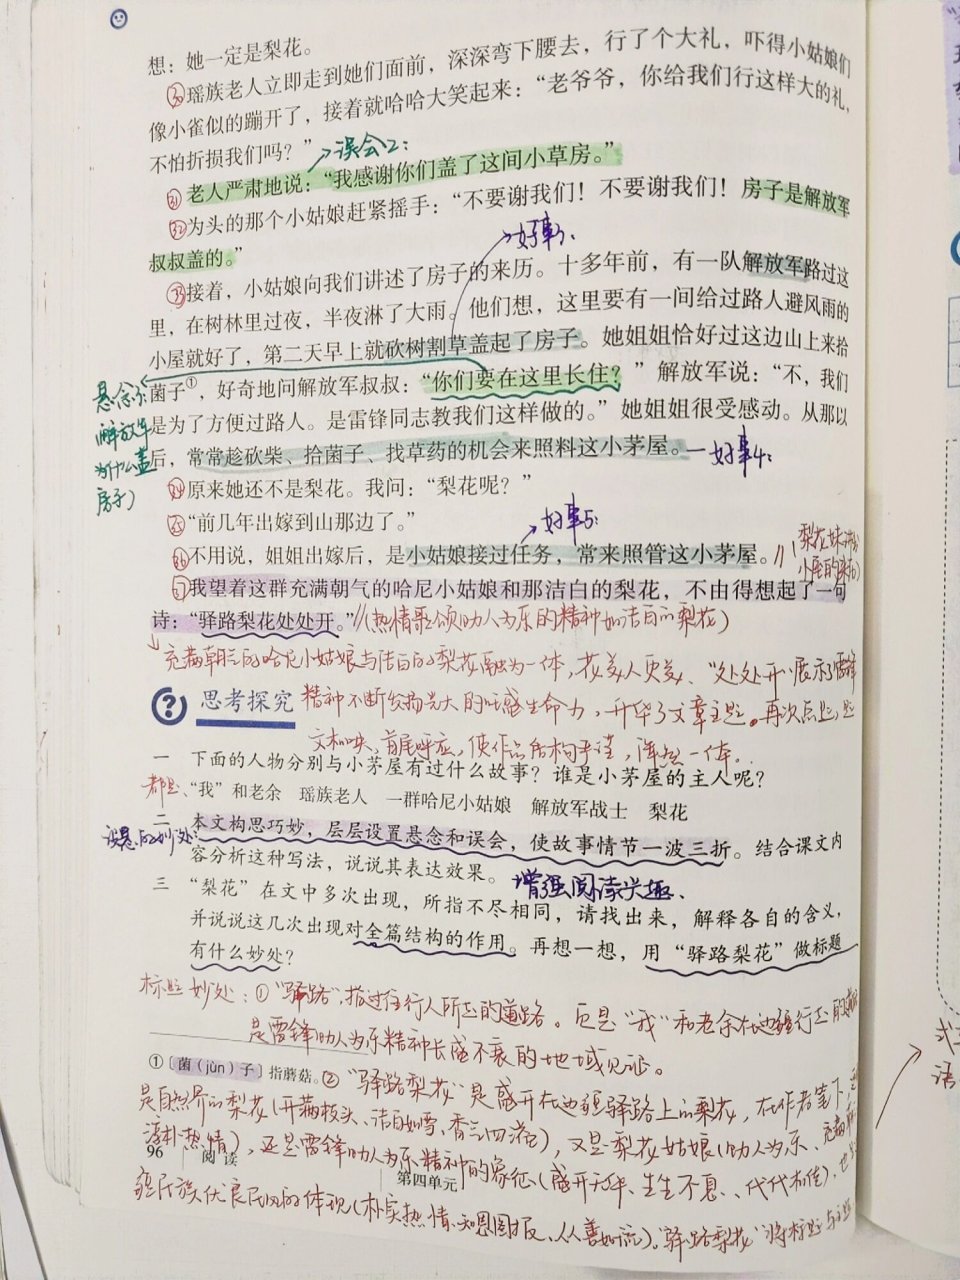 想：她一定是梨花。
㉚瑶族老人立即走到她们面前，深深弯下腰去，行了个大礼，吓得小姑娘们
像小雀似的蹦开了，接着就哈哈大笑起来：“老爷爷，你给我们行这样大的礼，
不怕折损我们吗？”
误会2：
㉛老人严肃地说：“我感谢你们盖了这间小草房。”
㉜为头的那个小姑娘赶紧摇手：“不要谢我们！不要谢我们！房子是解放军
叔叔盖的。”
好事3：
㉝接着，小姑娘向我们讲述了房子的来历。十多年前，有一队解放军路过这
里，在树林里过夜，半夜淋了大雨。他们想，这里要有一间给过路人避风雨的
小屋就好了，第二天早上就砍树割草盖起了房子。她姐姐恰好过这边山上来拾
菌子①，好奇地问解放军叔叔：“你们要在这里长住？”解放军说：“不，我们
是为了方便过路人。是雷锋同志教我们这样做的。”她姐姐很受感动。从那以
后，常常趁砍柴、拾菌子、找草药的机会来照料这小茅屋。
好事4：
悬念3：
（解放军
为什么盖
房子）
㉞原来她还不是梨花。我问：“梨花呢？”
㉟“前几年出嫁到山那边了。”
好事5：
㊱不用说，姐姐出嫁后，是小姑娘接过任务，常来照管这小茅屋。
㊲我望着这群充满朝气的哈尼小姑娘和那洁白的梨花，不由得想起了一句
诗：“驿路梨花处处开。”
（热情歌颂助人为乐的精神如洁白的梨花）
充满朝气的哈尼小姑娘与洁白的梨花融为一体，花美人更美、“处处开”展示了雷锋
思考探究
精神不断发扬光大的旺盛生命力，升华了文章主题。再次点题，
首尾呼应，使作品结构严谨，浑然一体。
一 下面的人物分别与小茅屋有过什么故事？谁是小茅屋的主人呢？
都是、
“我”和老余 瑶族老人 一群哈尼小姑娘 解放军战士 梨花
二 本文构思巧妙，层层设置悬念和误会，使故事情节一波三折。结合课文内
容分析这种写法，说说其表达效果。
增强阅读兴趣、
三 “梨花”在文中多次出现，所指不尽相同，请找出来，解释各自的含义，
并说说这几次出现对全篇结构的作用。再想一想，用“驿路梨花”做标题
有什么妙处？
标题妙处：①“驿路”，指过往行人所走的道路。
是雷锋助人为乐精神长盛不衰的地域见证。
①〔菌（jùn）子〕指蘑菇。
②“驿路梨花”是盛开在边疆驿路上的梨花，在作者笔下
是自然界的梨花（开满枝头、洁白如雪、香气四溢），又是梨花姑娘（助人为乐、
淳朴热情），还是雷锋助人为乐精神的象征（盛开不败、生生不息、代代相传），
96 阅读
第四单元
民族优良民风的体现（朴实热情、知恩图报、从善如流）。“驿路梨花”将标题与